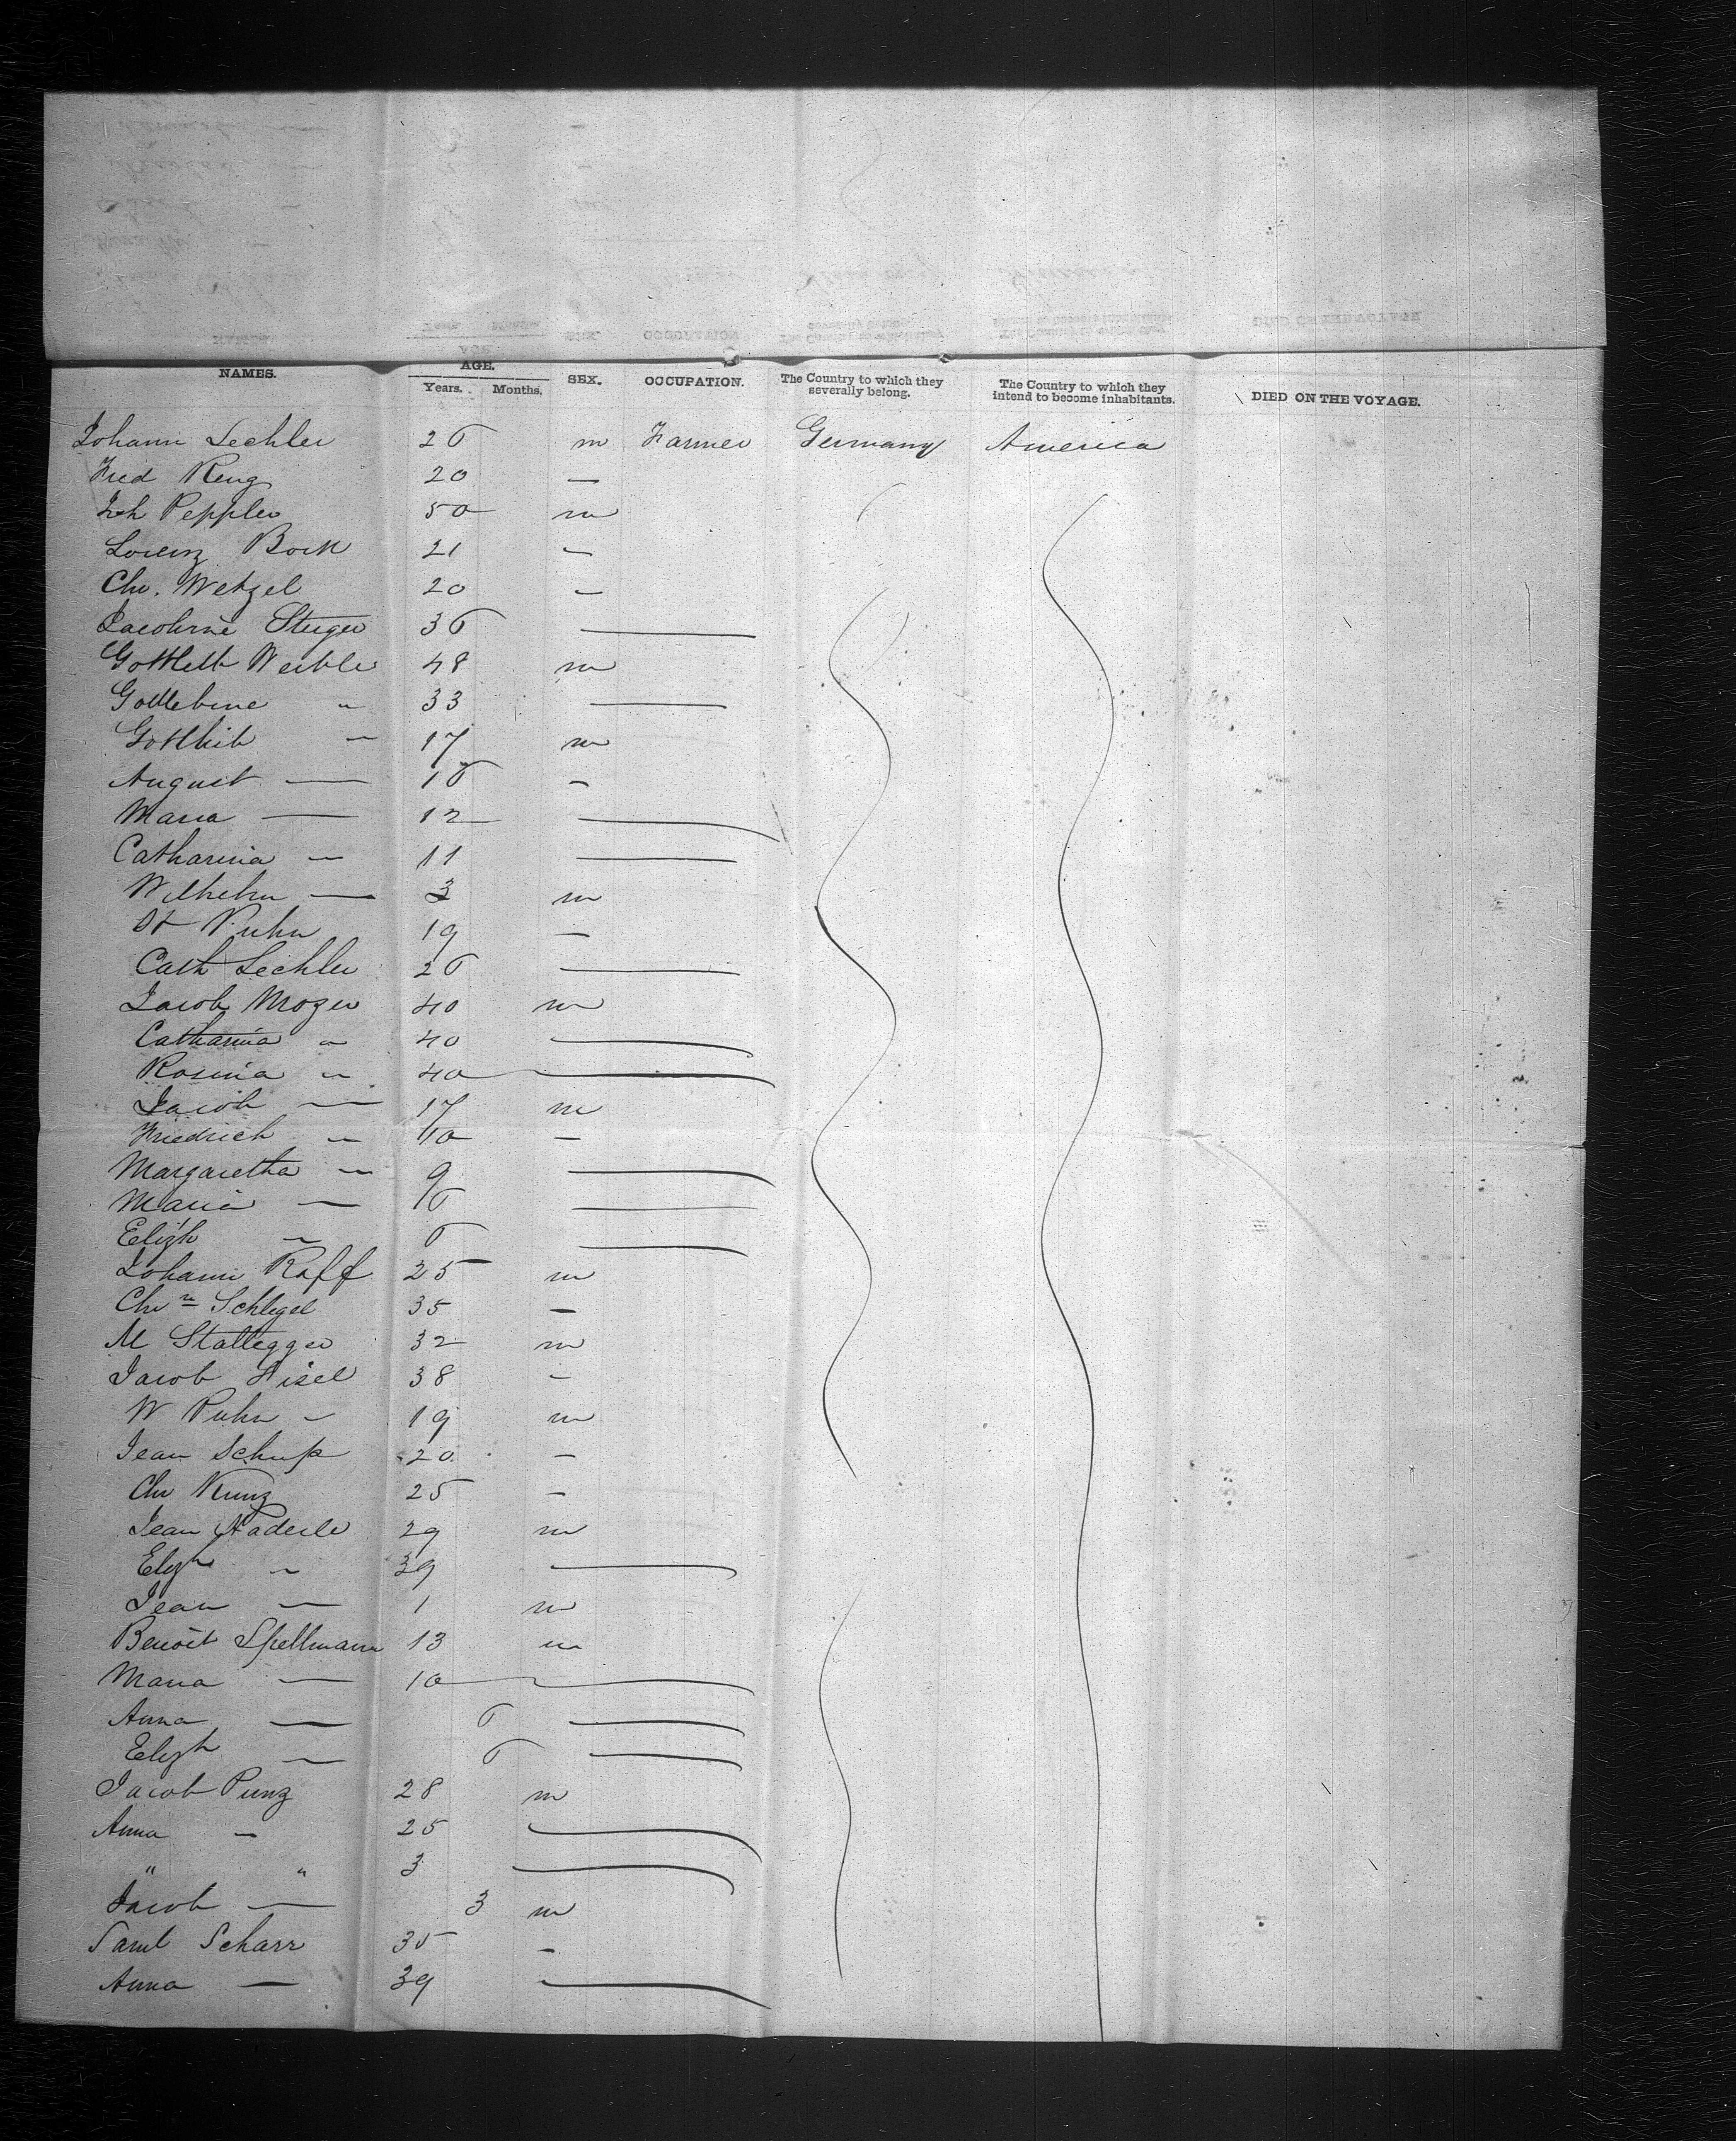 NAMES. AGE. Years. Months. SEX. OCCUPATION. The Country to which they severally belong. The Country to which they intend to become inhabitants. DIED ON THE VOYAGE.
Johann Lechler 26 m Farmer Germany America
Fred Reng 20 —
Joh Peppler 50 m
Lorenz Bork 21 —
Chr. Wetzel 20 —
Steiger 36 —
Gottlieb Weible 48 m
Gottlebine " 33 —
Gottlieb — 17 m
August — 16 —
Maria — 12 —
Catharina — 11 —
Wilhelm — 3 m
St Puhn 19 —
Cath Lechler 26 —
Jacob Mozer 40 m
Catharina " 40 —
Rosina " 40 —
Jacob — 17 m
Friedrich — 10 —
Margaretha — 9 —
Maria — —
Elizh — 6 —
Johann Raff 25 m
Chrn Schlegel 35 —
M Stallegger 32 m
Jacob 38 —
W Puhn — 19 m
Jean Schup 20 —
Chr Kunz 25 —
Jean Haderle 29 m
Elizh — 39 —
Jean — 1 m
Benoit Spellmann 13 m
Maria — 10 —
Anna — 6 —
Elizh — 6 —
Jacob Punz 28 m
Anna — 25 —
" " 3 —
Jacob — 3 m
Saml Scharr 35 —
Anna — 39 —